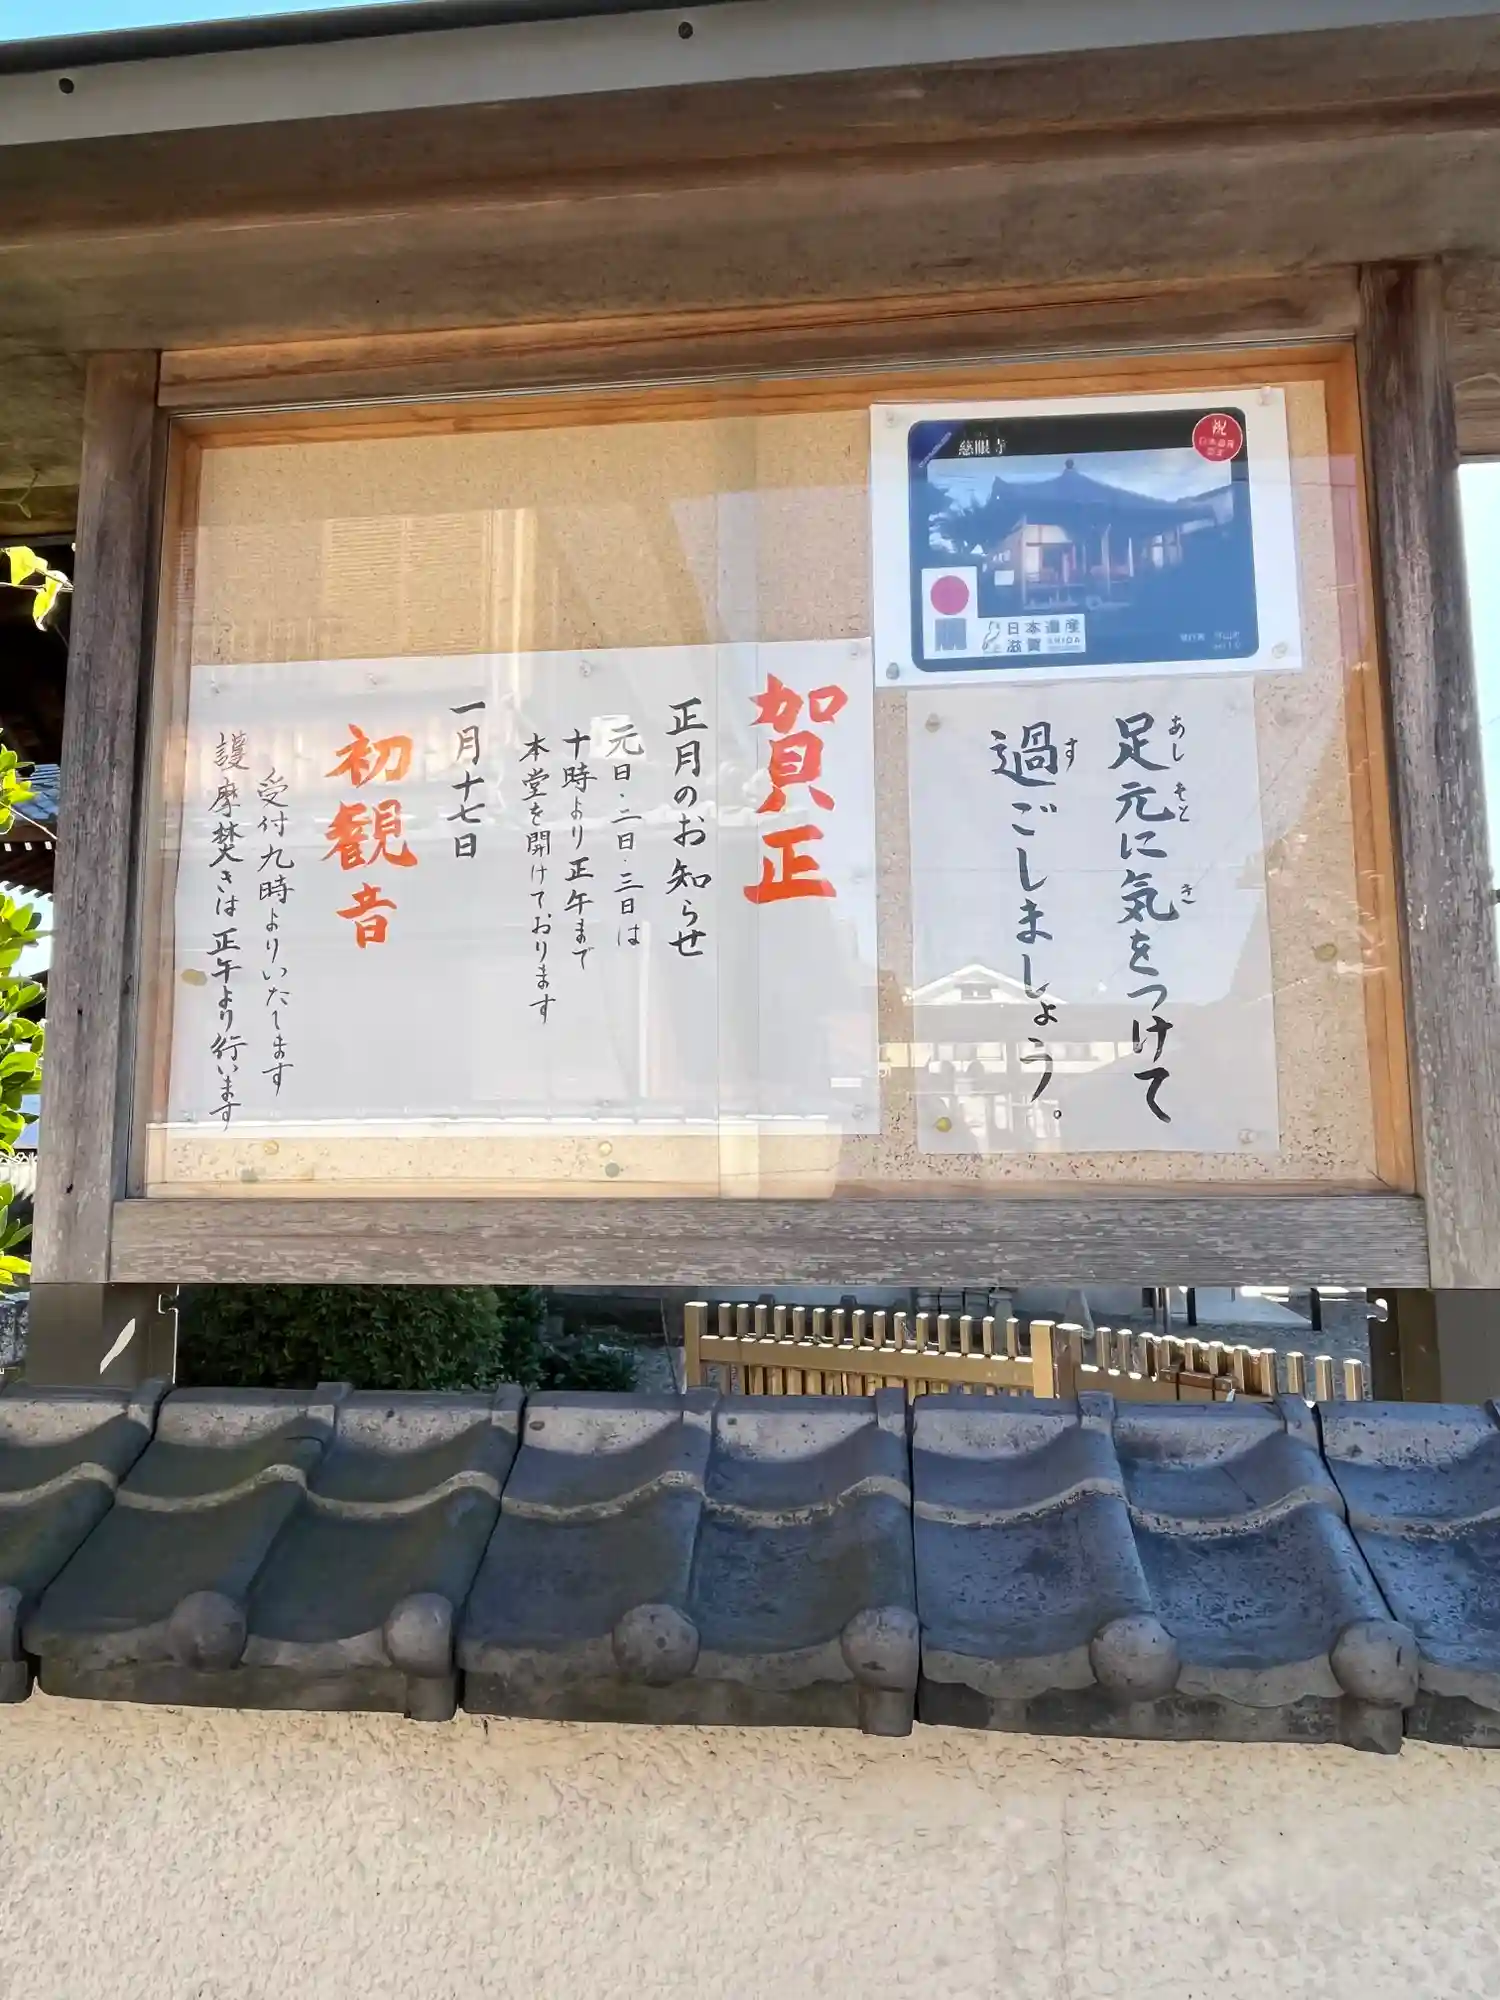 慈眼寺
祝
日本遺産
日本遺産
滋賀
SHIGA
足元に気をつけて
あし
もと
き
過ごしましょう。
す
賀正
正月のお知らせ
元日・二日・三日は
十時より正午まで
本堂を開けております
一月十七日
初観音
受付九時よりいたします
護摩焚きは正午より行います